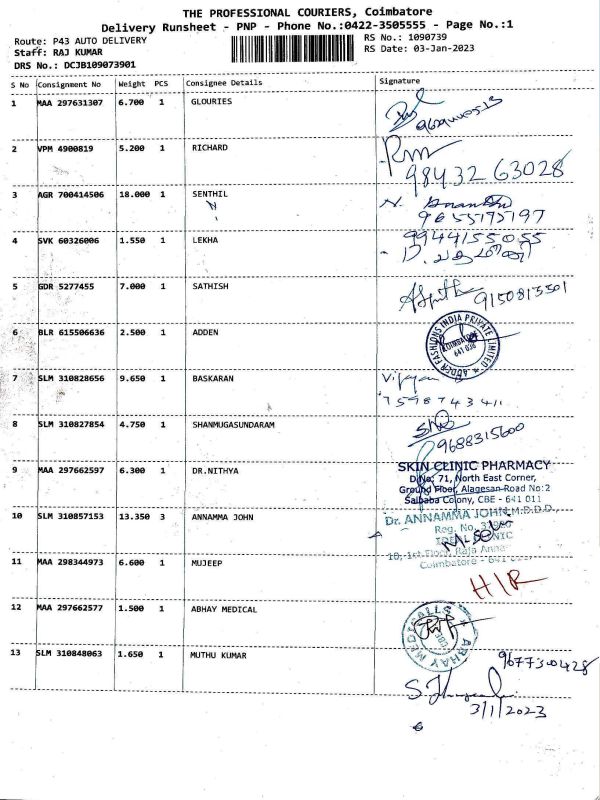 THE PROFESSIONAL COURIERS, Coimbatore
Delivery Runsheet - PNP - Phone No.:0422-3505555 - Page No.:1
Route: P43 AUTO DELIVERY RS No.: 1090739
Staff: RAJ KUMAR RS Date: 03-Jan-2023
DRS No.: DCJB109073901
S No Consignment No Weight PCS Consignee Details Signature
1 MAA 297631307 6.700 1 GLOURIES
2 VPM 4900819 5.200 1 RICHARD
98432 63028
3 AGR 700414506 18.000 1 SENTHIL
9655775797
4 SVK 60326006 1.550 1 LEKHA 9944155055
5 GDR 5277455 7.000 1 SATHISH
9150813501
6 BLR 615506636 2.500 1 ADDEN
ADDEN FASHIONS INDIA PRIVATE LIMITED
COIMBATORE
641 038
7 SLM 310828656 9.650 1 BASKARAN Vijayan
7598743411
8 SLM 310827854 4.750 1 SHANMUGASUNDARAM
9688315600
9 MAA 297662597 6.300 1 DR.NITHYA
SKIN CLINIC PHARMACY
D.No: 71, North East Corner,
Ground Floor, Alagesan Road No:2
Saibaba Colony, CBE - 641 011
10 SLM 310857153 13.350 3 ANNAMMA JOHN
Dr. ANNAMMA JOHN, M.D.D.D.
Reg. No.
CLINIC
1st Floor, Raja Anna
Coimbatore - 641
11 MAA 298344973 6.600 1 MUJEEP
H/R
12 MAA 297662577 1.500 1 ABHAY MEDICAL
ABHAY MEDICALS
CBE
13 SLM 310848063 1.650 1 MUTHU KUMAR
9677300428
3/1/2023